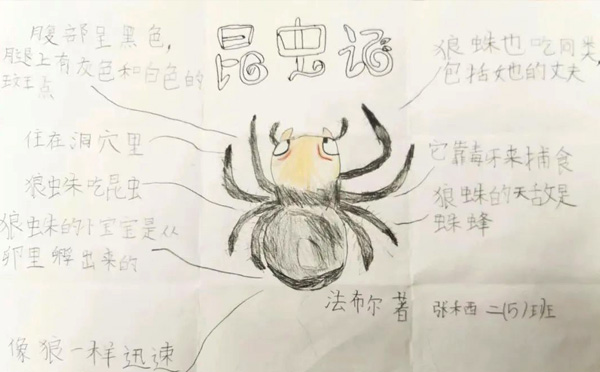 昆虫记
腹部呈黑色，
腿上有灰色和白色的
斑点
住在洞穴里
狼蛛吃昆虫
狼蛛的小宝宝是从
卵里孵出来的
像狼一样迅速
狼蛛也吃同类，
包括她的丈夫
它靠毒牙来捕食
狼蛛的天敌是
蛛蜂
法布尔 著 张禾西 二(5)班